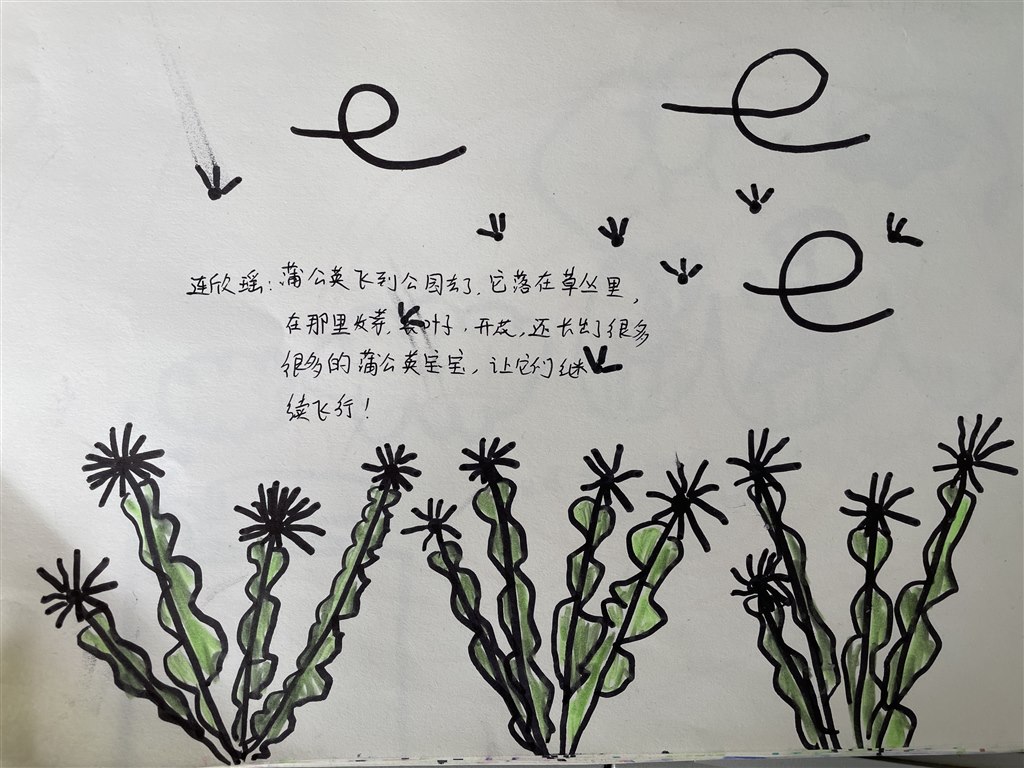 连欣瑶：蒲公英飞到公园去了，它落在草丛里，
在那里发芽，长叶子，开花，还长出了很多
很多的蒲公英宝宝，让它们继
续飞行！